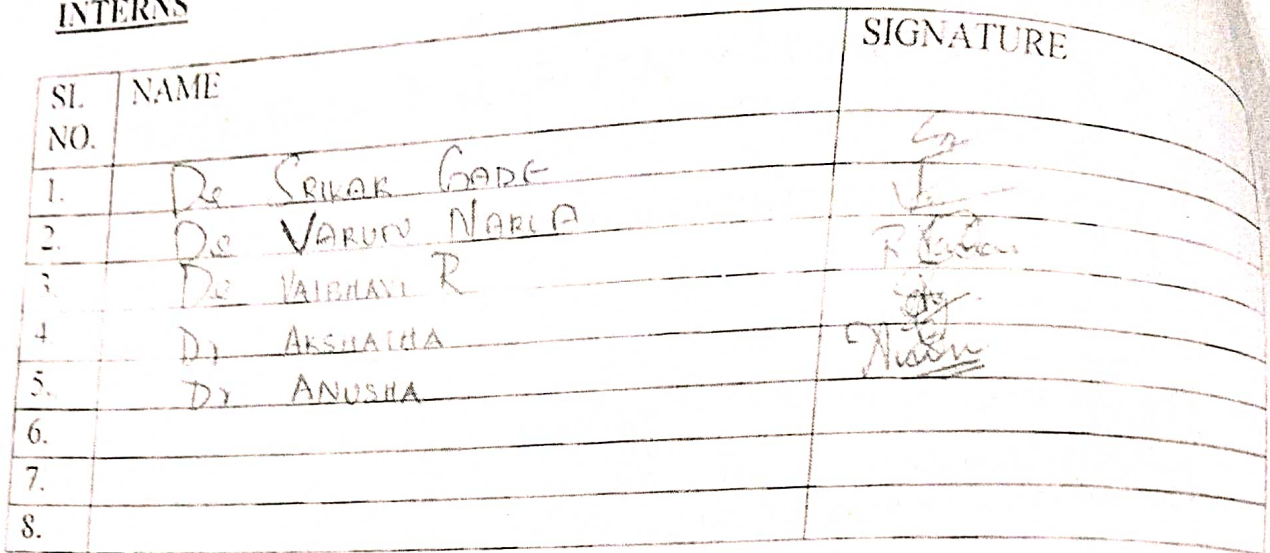 INTERNS
SL. NO. NAME SIGNATURE
1. Dr SRIKAR GADE
2. Dr VARUN NARLA
3. Dr VAIBHAVI R
4 Dr AKSHATHA
5. Dr ANUSHA
6.
7.
8.